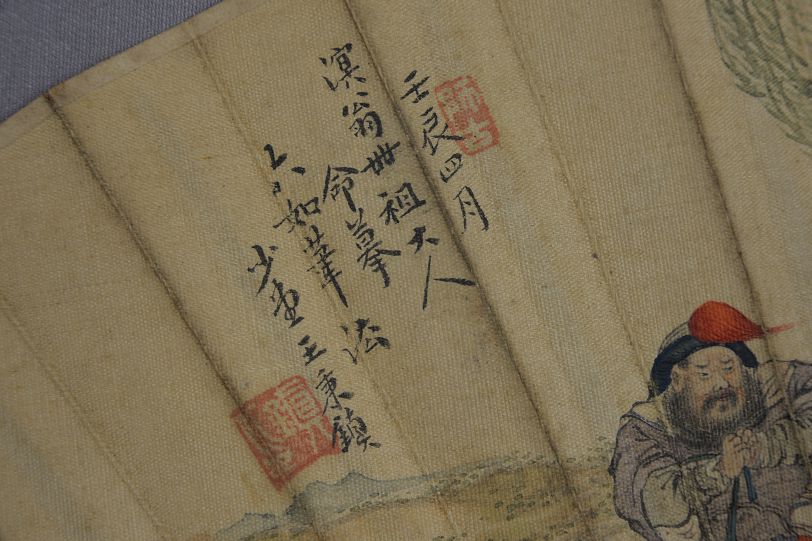 壬辰四月
溟翁世祖大人
命摹
六如筆法
少堂王秉鎮
師古